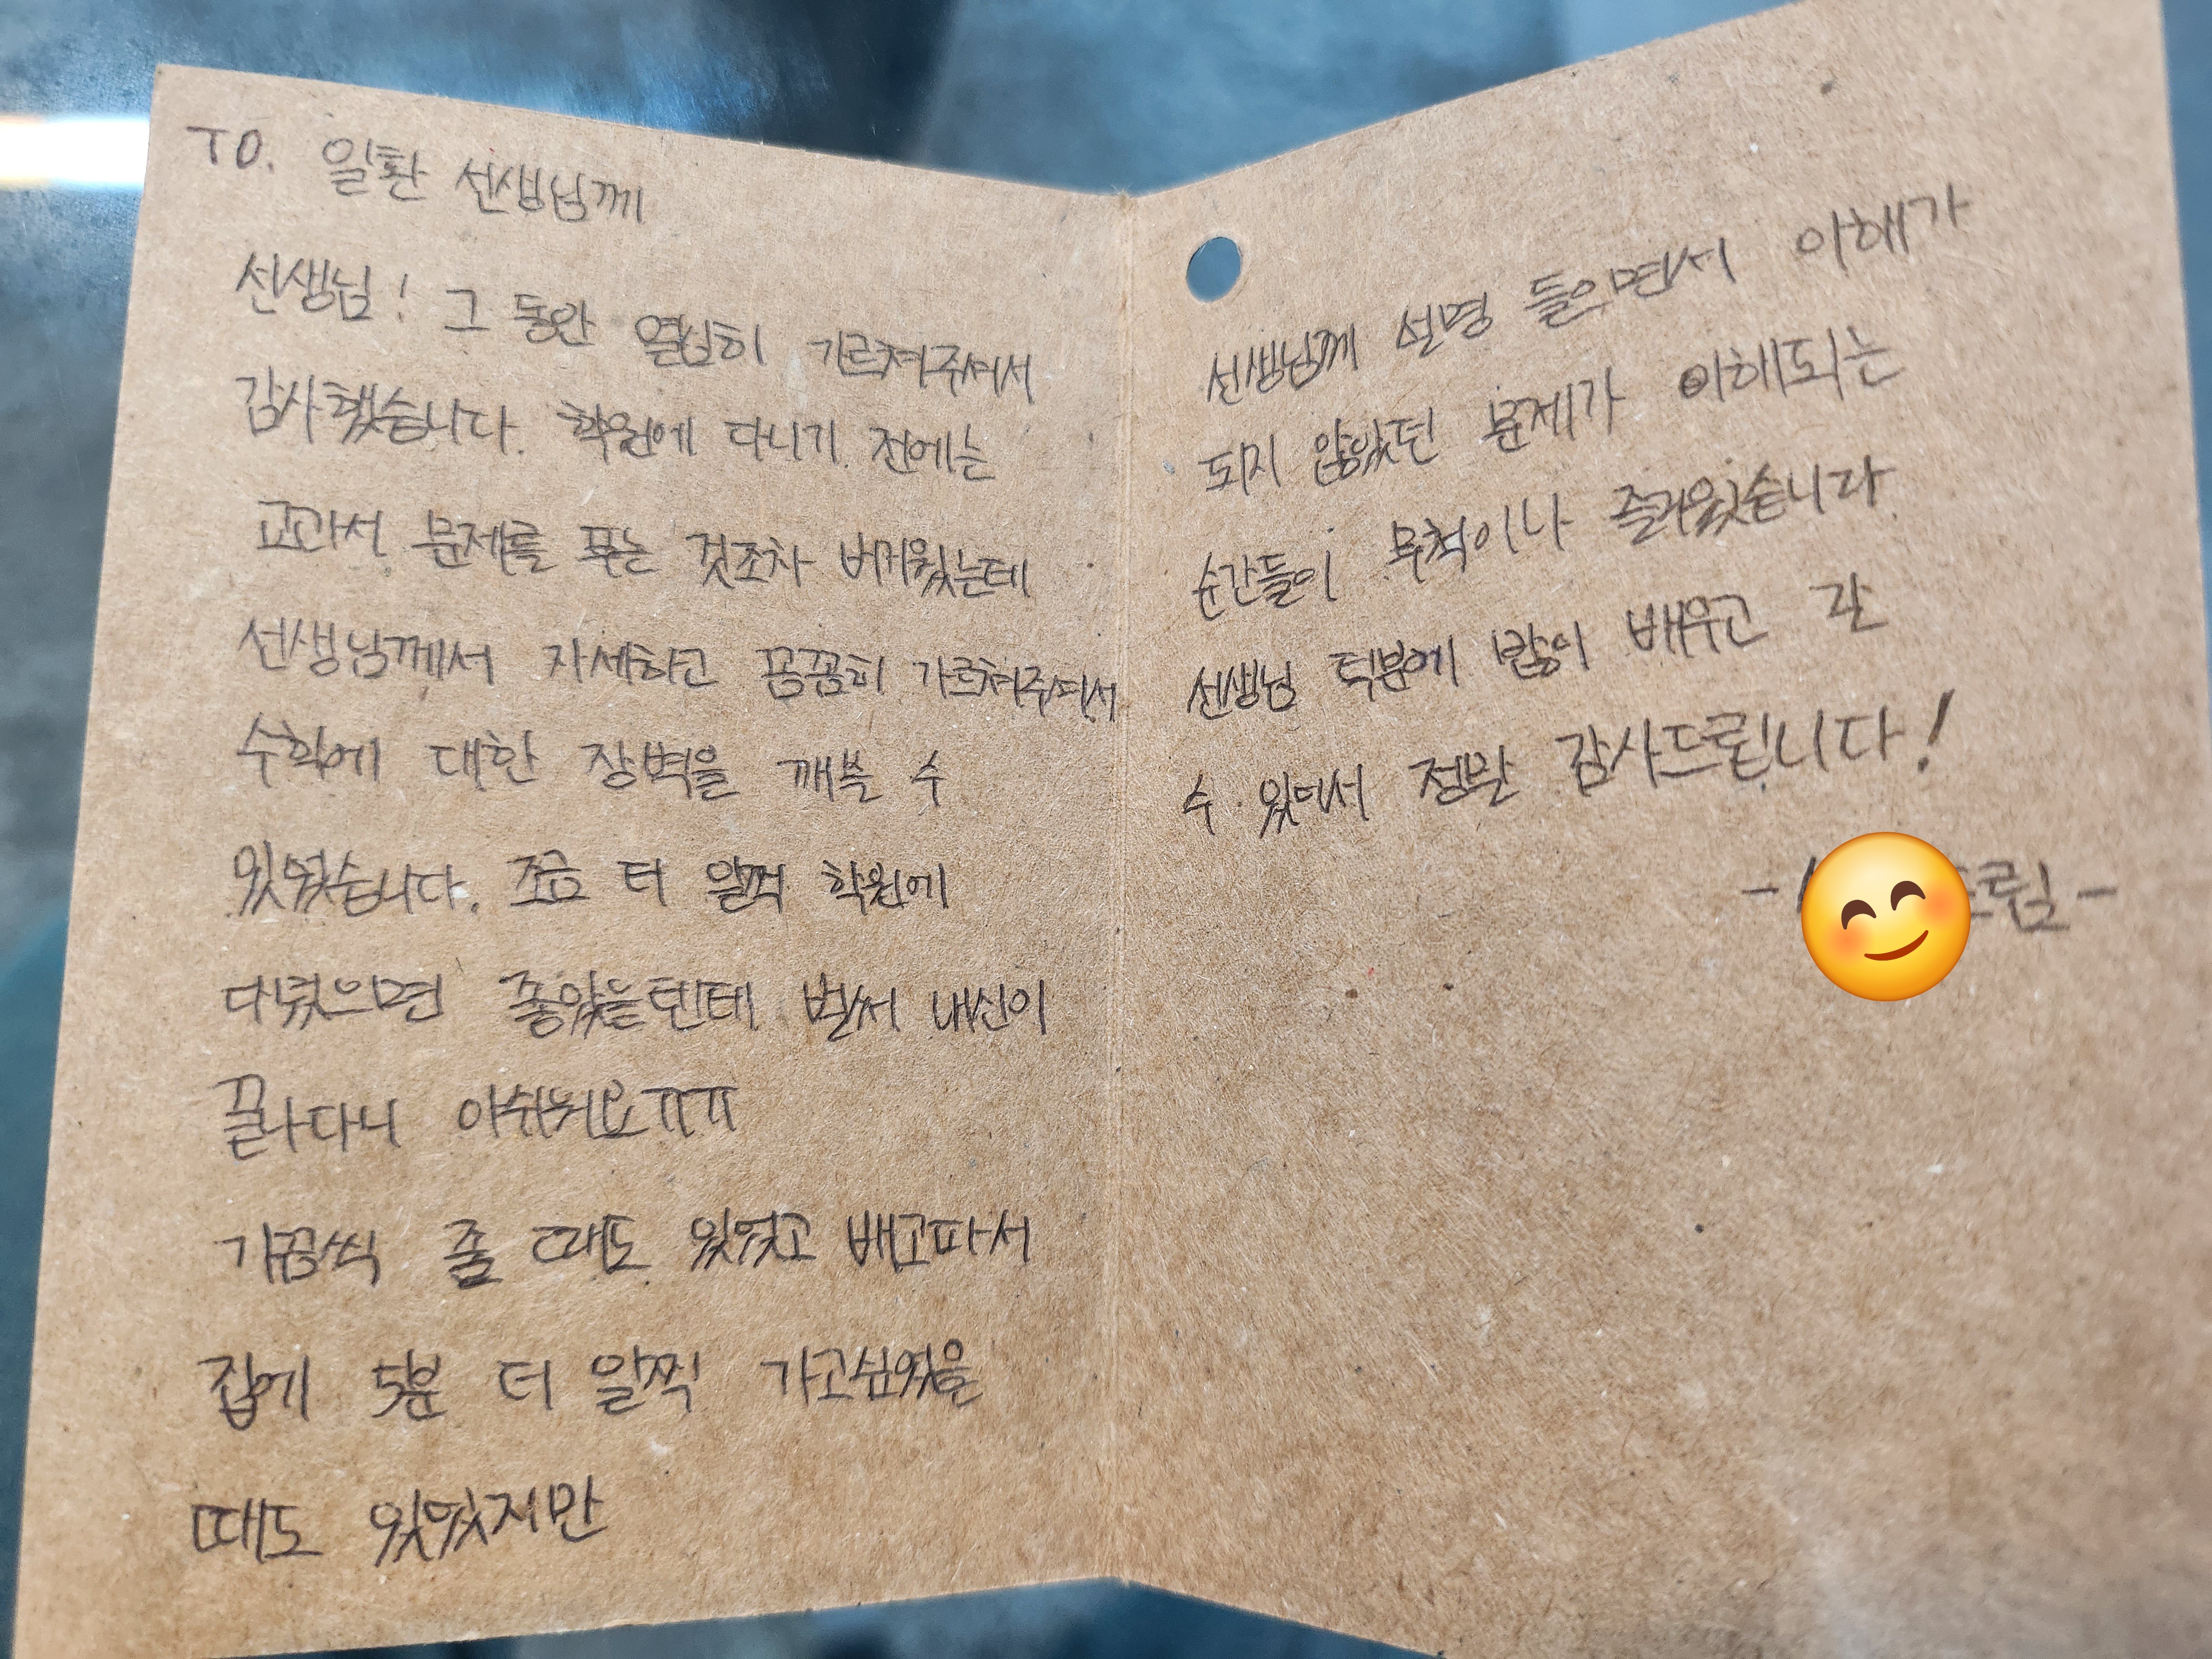 TO. 일환 선생님께
선생님! 그 동안 열심히 가르쳐주셔서
감사했습니다. 학원에 다니기 전에는
교과서 문제를 푸는 것조차 버거웠는데
선생님께서 자세하고 꼼꼼히 가르쳐주셔서
수학에 대한 장벽을 깨부술 수
있었습니다. 조금 더 일찍 학원에
다녔으면 좋았을텐데 벌써 내신이
끝나다니 아쉬워요ㅠㅠ
가끔씩 졸 때도 있었고 배고파서
집에 5분 더 일찍 가고싶었을
때도 있었지만
선생님께 설명 들으면서 이해가
되지 않았던 문제가 이해되는
순간들이 무척이나 즐거웠습니다
선생님 덕분에 많이 배우고 갈
수 있어서 정말 감사드립니다!